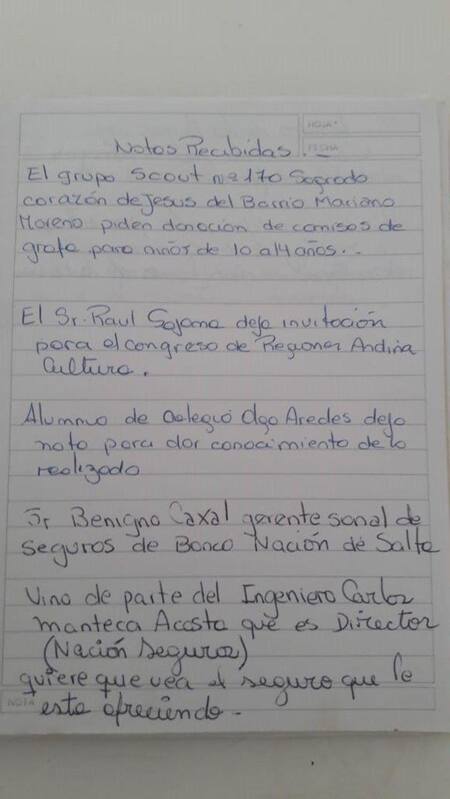 HOJA Nº
FECHA
Notas Recibidas.-
El grupo Scout nº 170 Sagrado
corazón de Jesus del Barrio Mariano
Moreno piden donación de camisas de
grafa para niños de 10 a 14 años..
El Sr. Raul Sajama dejo invitación
para el congreso de Regiones Andina
Cultura.
Alumno de Colegio Olga Aredes dejo
nota para dar conocimiento de lo
realizado
Sr Benigno Caxal gerente sonal de
seguros de Banco Nación de Salta
Vino de parte del Ingeniero Carlos
manteca Acosta que es Director
(Nación Seguros)
quiere que vea el seguro que le
NOTA
esta ofreciendo-